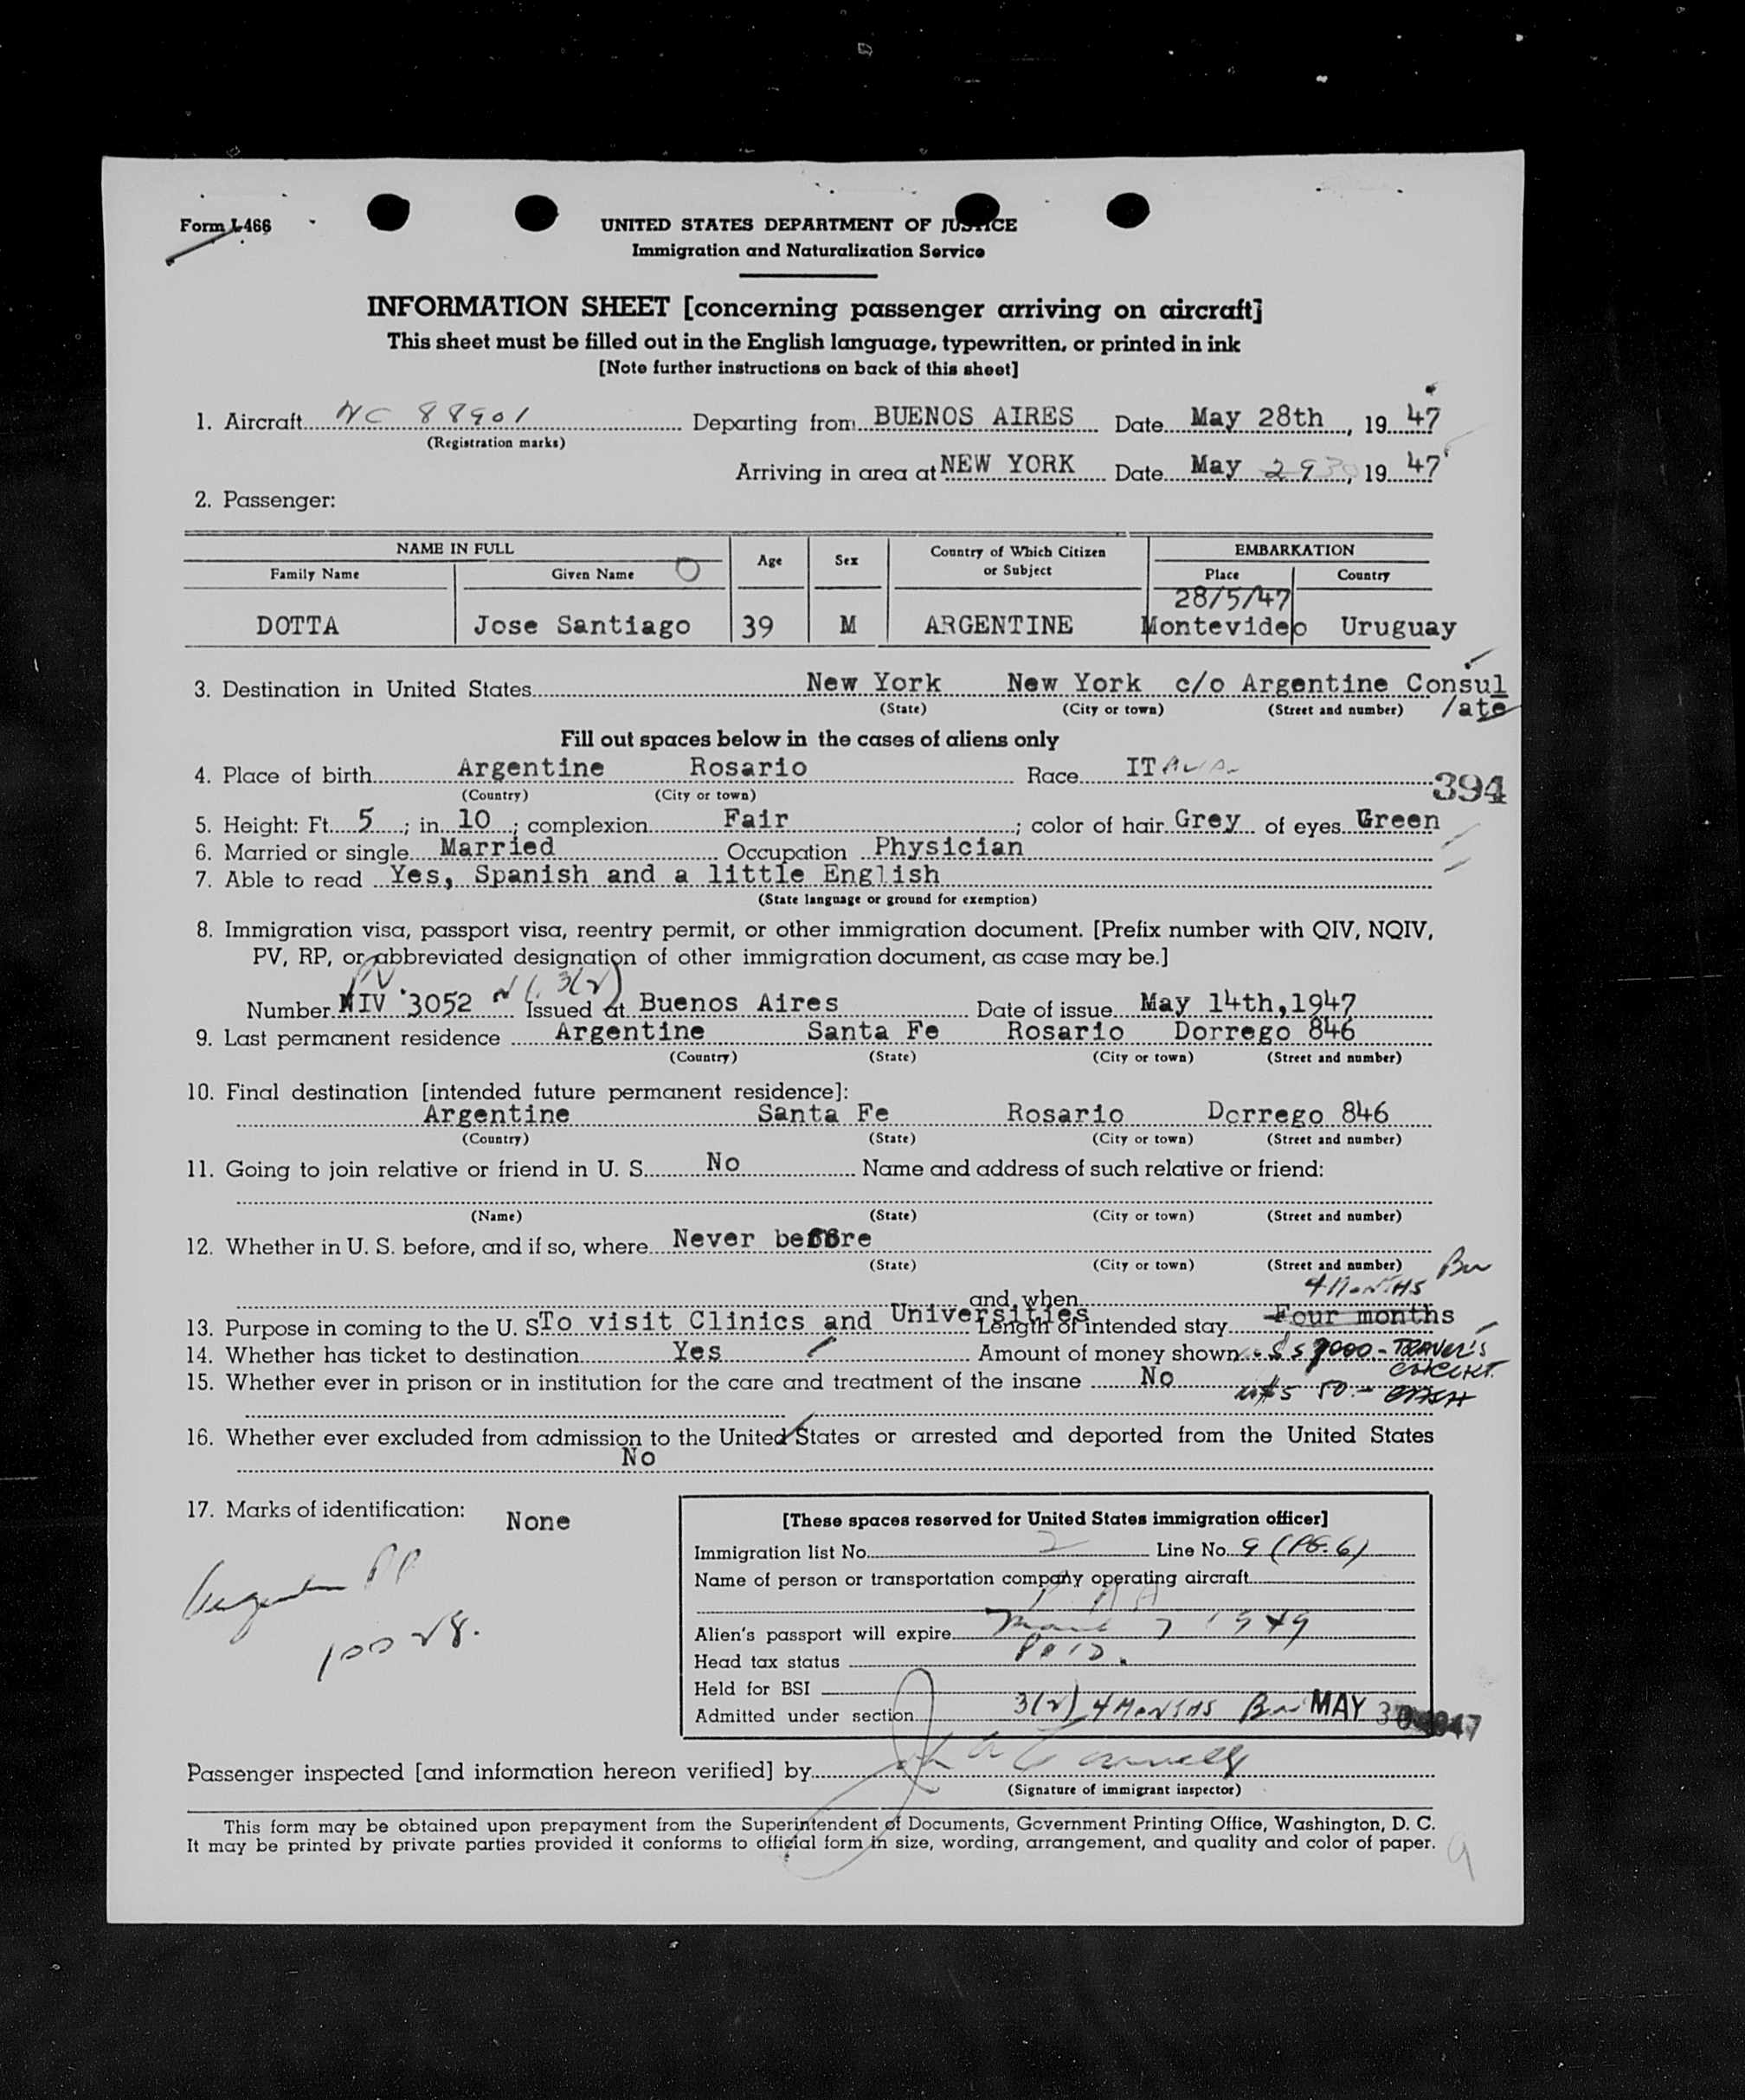 Form I-466
UNITED STATES DEPARTMENT OF JUSTICE
Immigration and Naturalization Service
INFORMATION SHEET [concerning passenger arriving on aircraft]
This sheet must be filled out in the English language, typewritten, or printed in ink
[Note further instructions on back of this sheet]
1. Aircraft NC 88901 Departing from BUENOS AIRES Date May 28th, 1947
(Registration marks)
Arriving in area at NEW YORK Date May 29 , 1947
2. Passenger:
NAME IN FULL Age Sex Country of Which Citizen or Subject EMBARKATION
Family Name Given Name Place Country
28/5/47
DOTTA Jose Santiago 39 M ARGENTINE Montevideo Uruguay
3. Destination in United States New York New York c/o Argentine Consul
(State) (City or town) (Street and number) /ate
Fill out spaces below in the cases of aliens only
4. Place of birth Argentine Rosario Race IT
(Country) (City or town) 394
5. Height: Ft. 5; in. 10; complexion Fair; color of hair Grey of eyes Green
6. Married or single Married Occupation Physician
7. Able to read Yes, Spanish and a little English
(State language or ground for exemption)
8. Immigration visa, passport visa, reentry permit, or other immigration document. [Prefix number with QIV, NQIV,
PV, RP, or abbreviated designation of other immigration document, as case may be.]
PV 3(2)
Number NIV 3052 Issued at Buenos Aires Date of issue May 14th, 1947
9. Last permanent residence Argentine Santa Fe Rosario Dorrego 846
(Country) (State) (City or town) (Street and number)
10. Final destination [intended future permanent residence]:
Argentine Santa Fe Rosario Dorrego 846
(Country) (State) (City or town) (Street and number)
11. Going to join relative or friend in U. S. No Name and address of such relative or friend:
(Name) (State) (City or town) (Street and number)
12. Whether in U. S. before, and if so, where Never before
(State) (City or town) (Street and number)
and when 4 MONTHS
13. Purpose in coming to the U. S. To visit Clinics and Universities Length of intended stay Four months
14. Whether has ticket to destination Yes Amount of money shown
15. Whether ever in prison or in institution for the care and treatment of the insane No
16. Whether ever excluded from admission to the United States or arrested and deported from the United States
No
17. Marks of identification: None
[These spaces reserved for United States immigration officer]
Immigration list No. 2 Line No. 9 (PG. 6)
Name of person or transportation company operating aircraft
PAA
Alien's passport will expire 7 1949
Head tax status PAID.
Held for BSI
Admitted under section 3(2) 4 MONTHS MAY 30 1947
10028.
Passenger inspected [and information hereon verified] by
(Signature of immigrant inspector)
This form may be obtained upon prepayment from the Superintendent of Documents, Government Printing Office, Washington, D. C.
It may be printed by private parties provided it conforms to official form in size, wording, arrangement, and quality and color of paper.
9